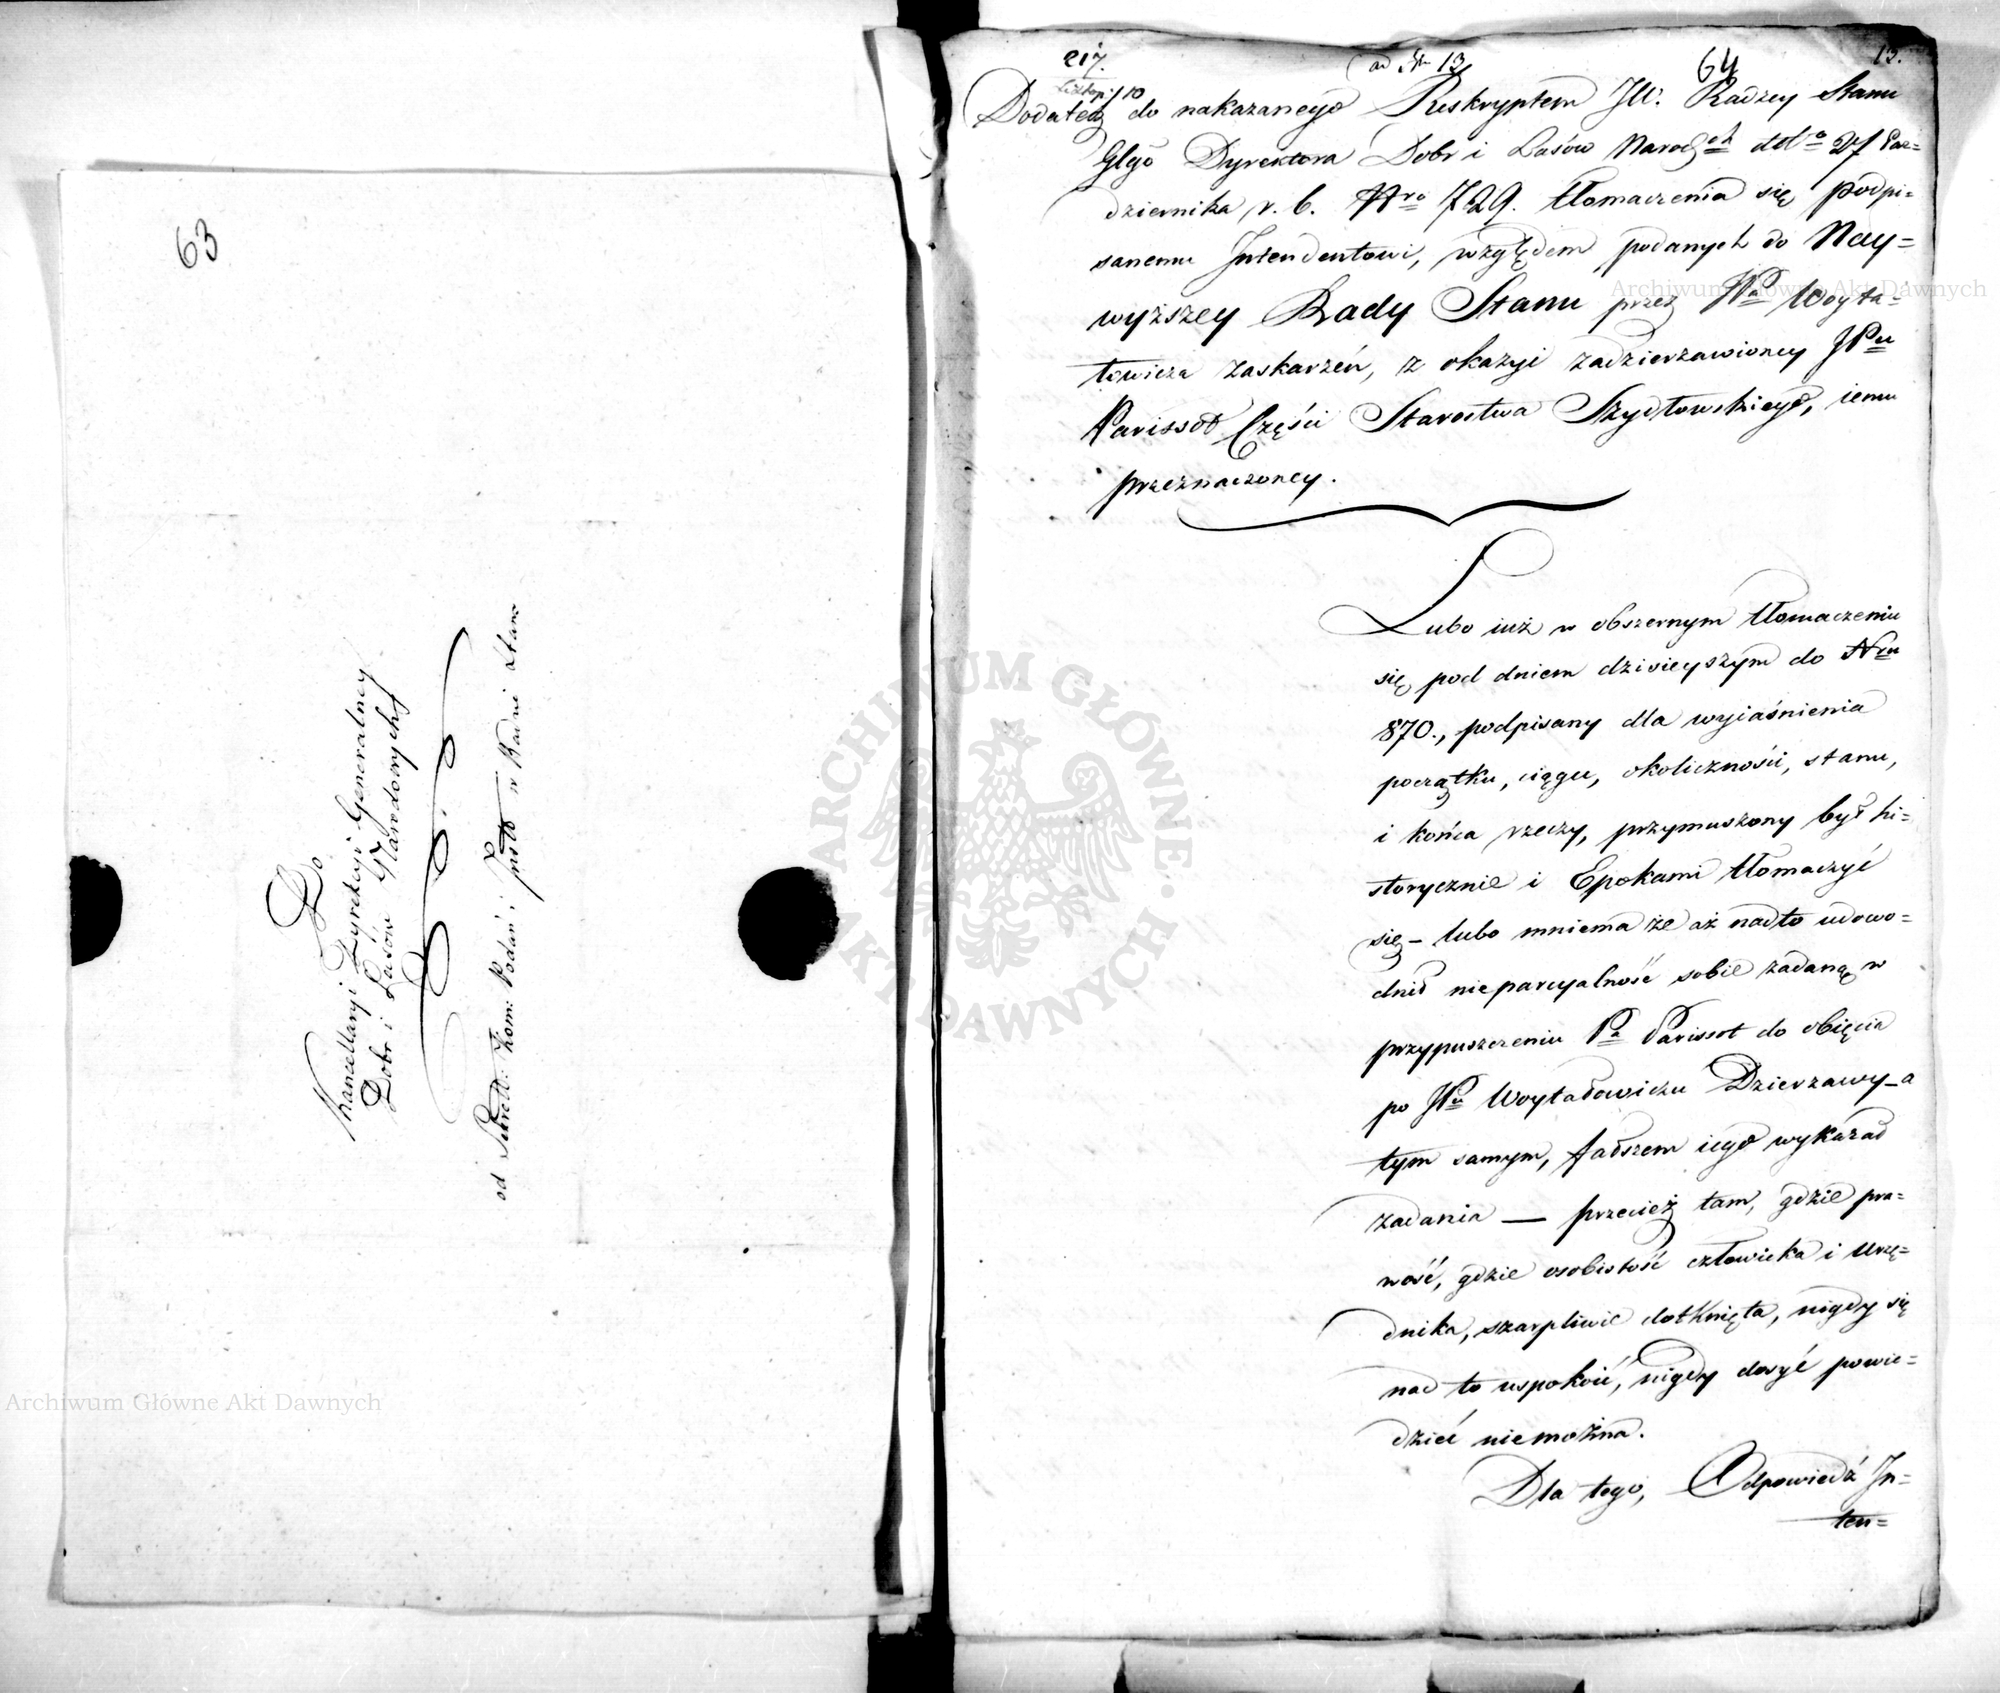 63
Do
Kancellaryi Dyrekcyi Generalney
Dobr i Lasów Narodowych
od Sekret: Kom: Podań i Próśb w Radzie Stanu
217.
ad N 13
64
13.
10
Dodatek do nakazanego Reskryptem JW. Radzcy Stanu
Glgo Dyrektora Dobr i Lasów Narod^ch dd^to 27 Paz=
dziernika r. b. N^ro 729. tłomaczenia się podpi=
sanemu Intendentowi, względem podanych do Nay=
wyższey Rady Stanu przez JP^a Woyta=
towicza zaskarżeń, z okazyi zadzierzawioney JP^u
Parissot Części Starostwa Szydłowskiego, iemu
przeznaczoney.
Lubo iuż w obszernym tłomaczeniu
się pod dniem dzisieyszym do N^ru
870., podpisany dla wyiaśnienia
początku, ciągu, okoliczności, stanu,
i końca rzeczy, przymuszony był hi=
storycznie i Epokami tłomaczyć
się – lubo mniema że aż nadto udowo=
dnił nieparcyalność sobie zadaną w
przypuszczeniu P^a Parissot do obięcia
po JP^u Woytatowiczu Dzierzawy – a
tym samym, fałszem iego wykazał
zadania — przecież tam, gdzie pra=
wość, gdzie osobistość człowieka i Urzę=
dnika, szarpliwie dotknięta, nigdy się
nad to uspokoić, nigdy dosyć powie=
dzieć niemożna.
Dla tego, Odpowiedź In=
ten=
Archiwum Główne Akt Dawnych
Archiwum Główne Akt Dawnych
ARCHIWUM GŁÓWNE AKT DAWNYCH